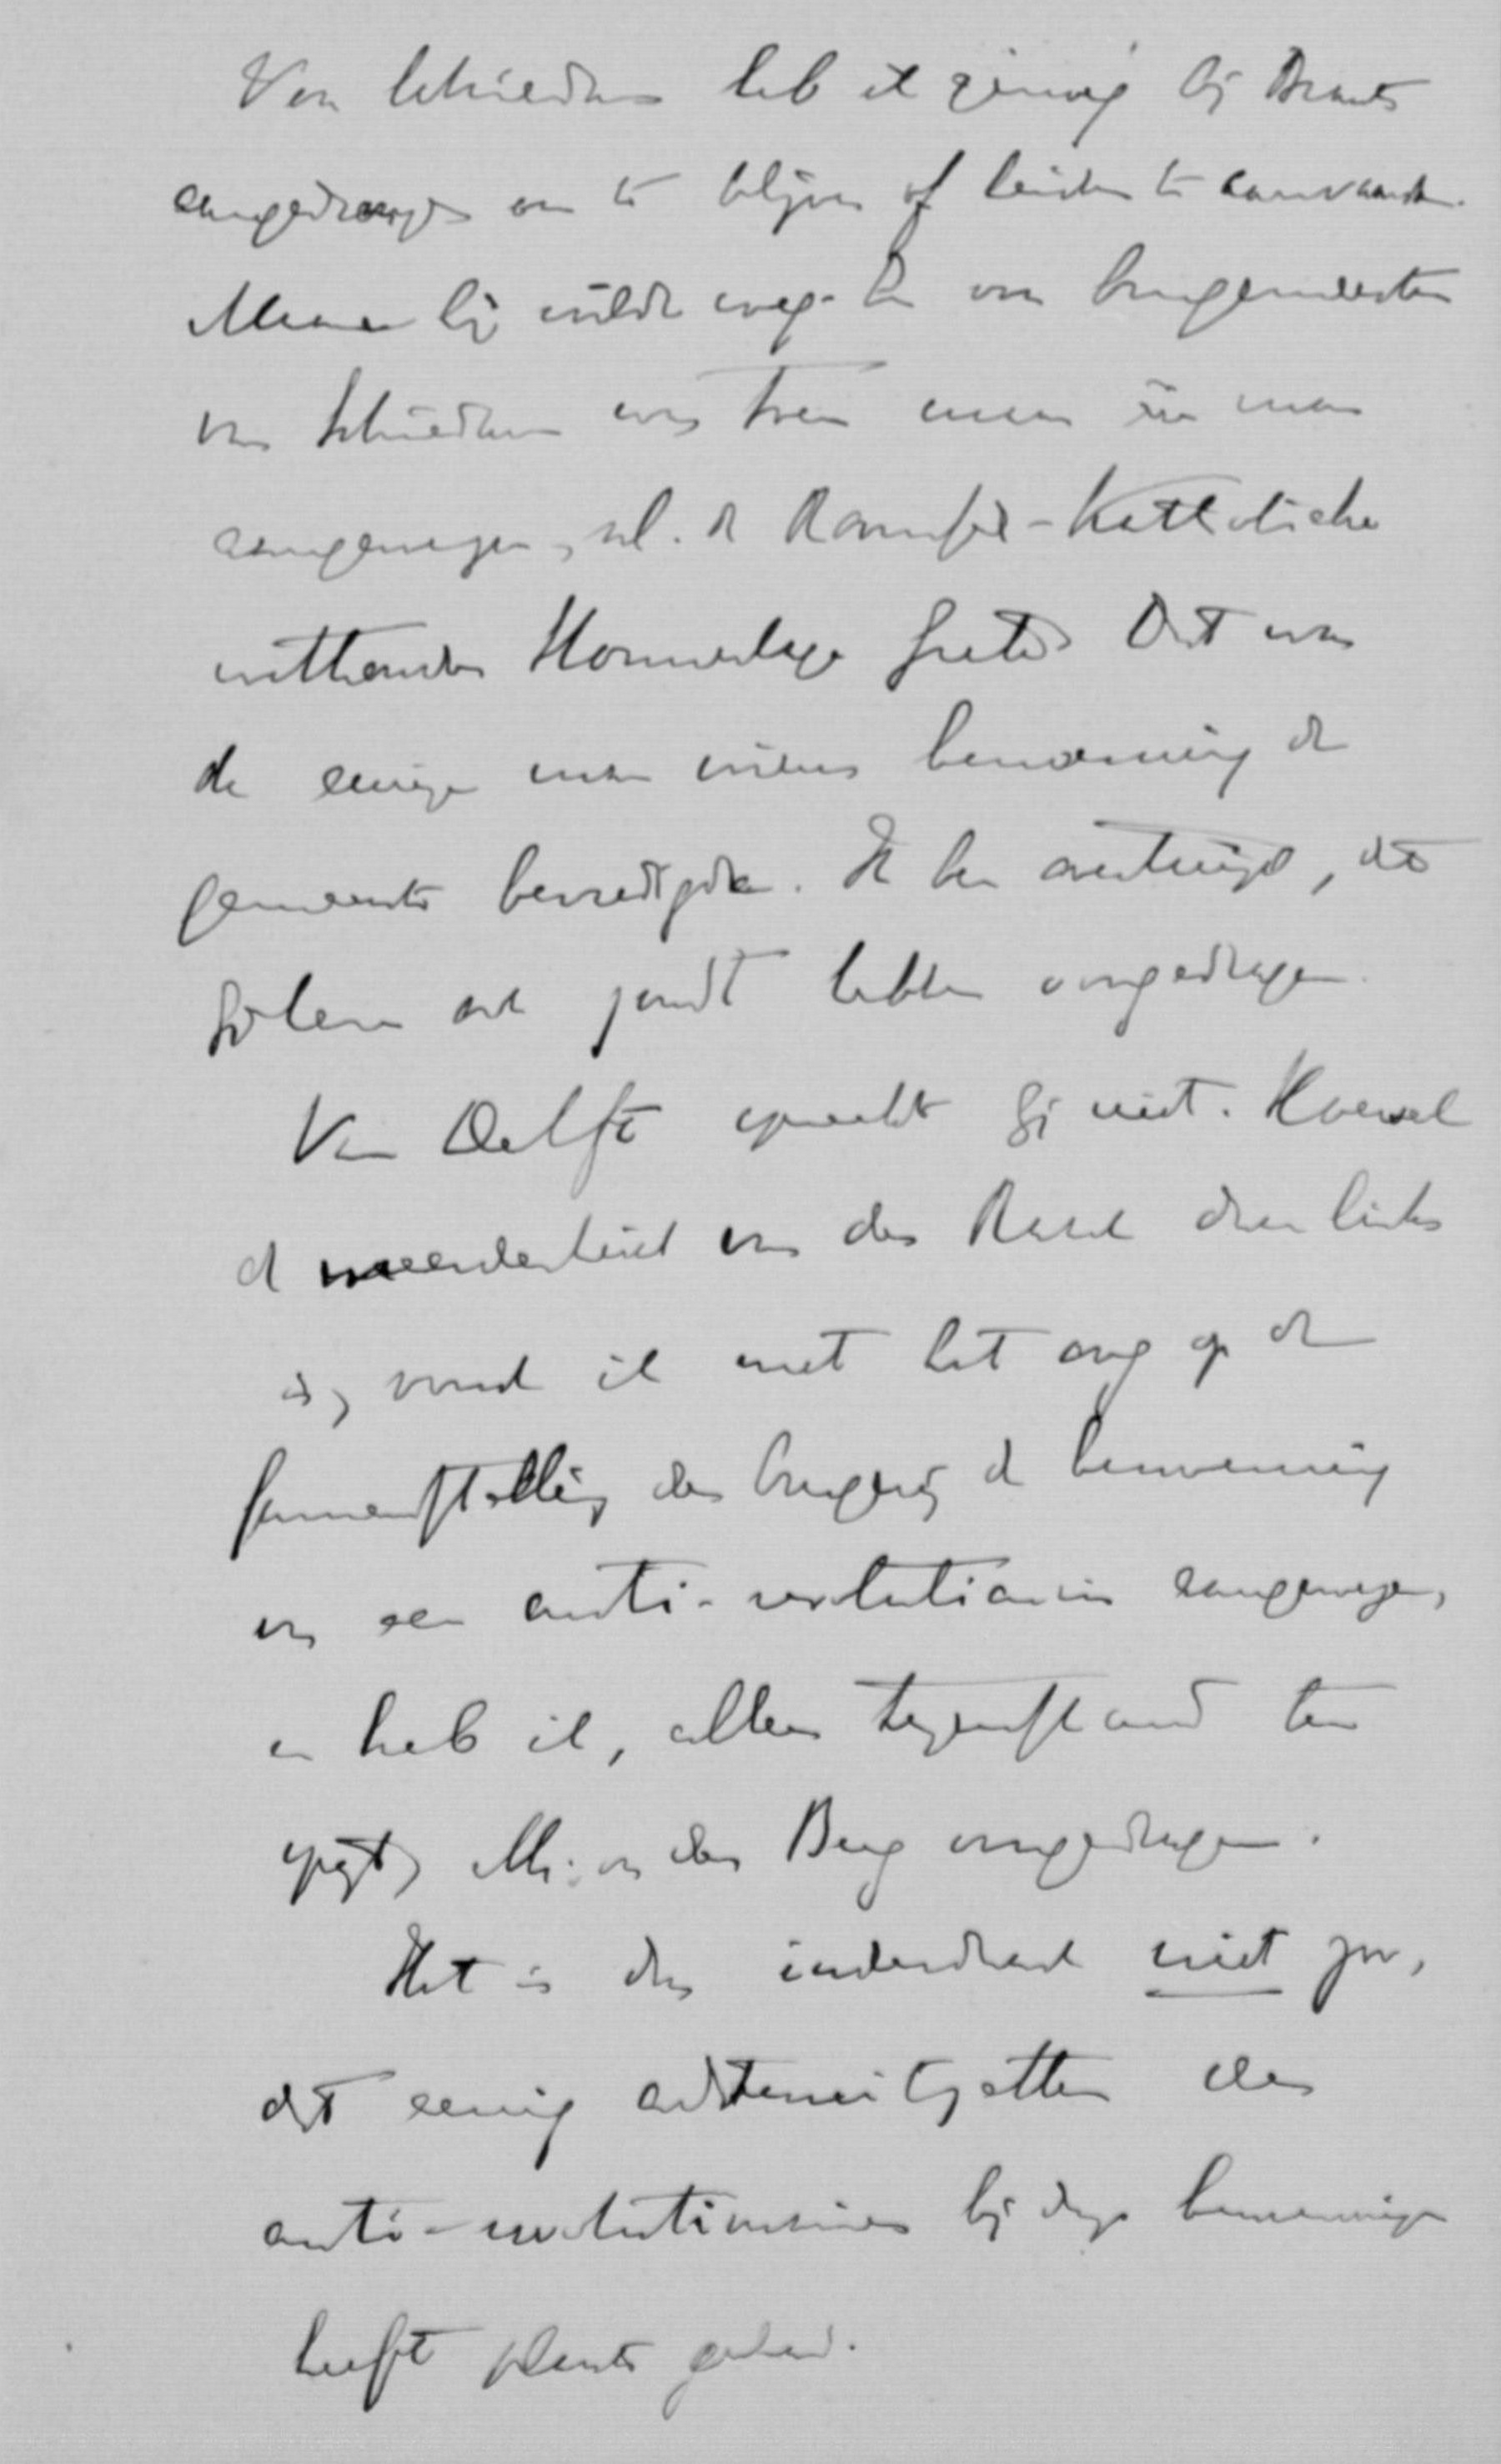 Van Schiedam heb ik genoeg bij Brants
aangedrongen om te blijven of Leiden te aanvaarden.
Maar hij wilde weg. En van burgemeester
van Schiedam was toen maar één man
aangewezen, nl. de Roomsch-Katholieke
wethouder Honnerlage Grete. Dat was
de eenige man wiens benoeming de
gemeente bevredigde. Ik ben overtuigd, dat
ook zoudt hebben voorgedragen.
Van Delft spreekt gij niet. Hoewel
de meerderheid van den Raad daar links
is, vond ik met het oog op de
samenstelling der burgerij de benoeming
van een anti-revolutionair aangewezen,
en heb ik, allen tegenstand ten
spijt, Mr. v. den Berg voorgedragen.
Het is dus inderdaad niet zoo,
dat eenig achteruitzetten der
anti-revolutionairen bij deze benoemingen
heeft plaats gehad.